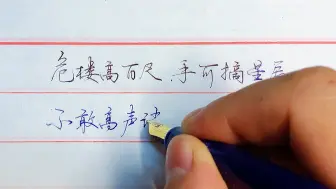 危楼高百尺,手可摘星辰
不敢高声